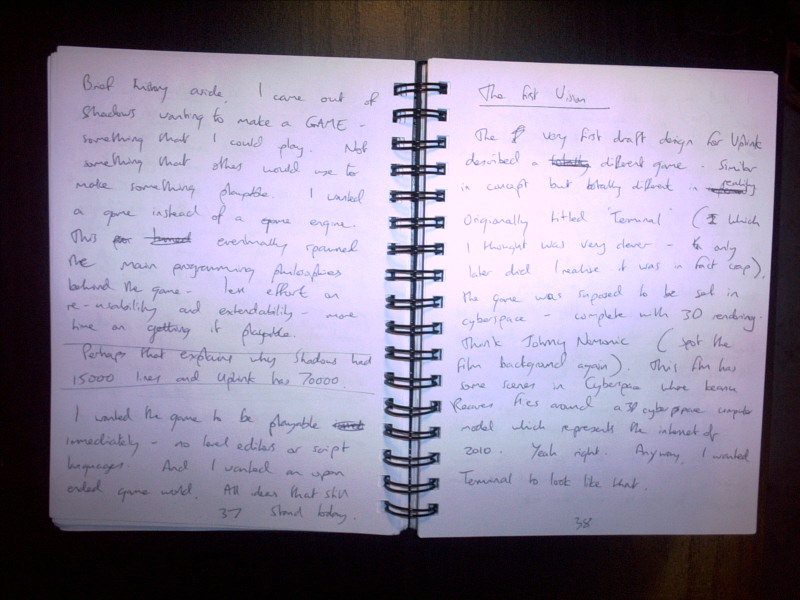 Brief history aside, I came out of
Shadows wanting to make a GAME -
something that I could play. Not
something that others would use to
make something playable. I wanted
a game instead of a game engine.
This eventually spawned
the main programming philosophies
behind the game - less effort on
re-usability and extendability - more
time on getting it playable.
Perhaps that explains why Shadows had
15000 lines and Uplink has 70000.
I wanted the game to be playable
immediately - no level editors or script
languages. And I wanted an open
ended game world. All ideas that still
stand today.
37
The First Vision
The very first draft design for Uplink
described a totally different game. Similar
in concept but totally different in reality
Originally titled "Terminal" (which
I thought was very clever - only
later did I realise it was in fact crap),
the game was suposed to be set in
cyberspace - complete with 3D rendering.
Think Johnny Nemonic (spot the
film background again). This film has
some scenes in Cyberspace where keanu
Reeves flies around a 3D cyberspace computer
model which represents the internet of
2010. Yeah right. Anyway, I wanted
Terminal to look like that.
38